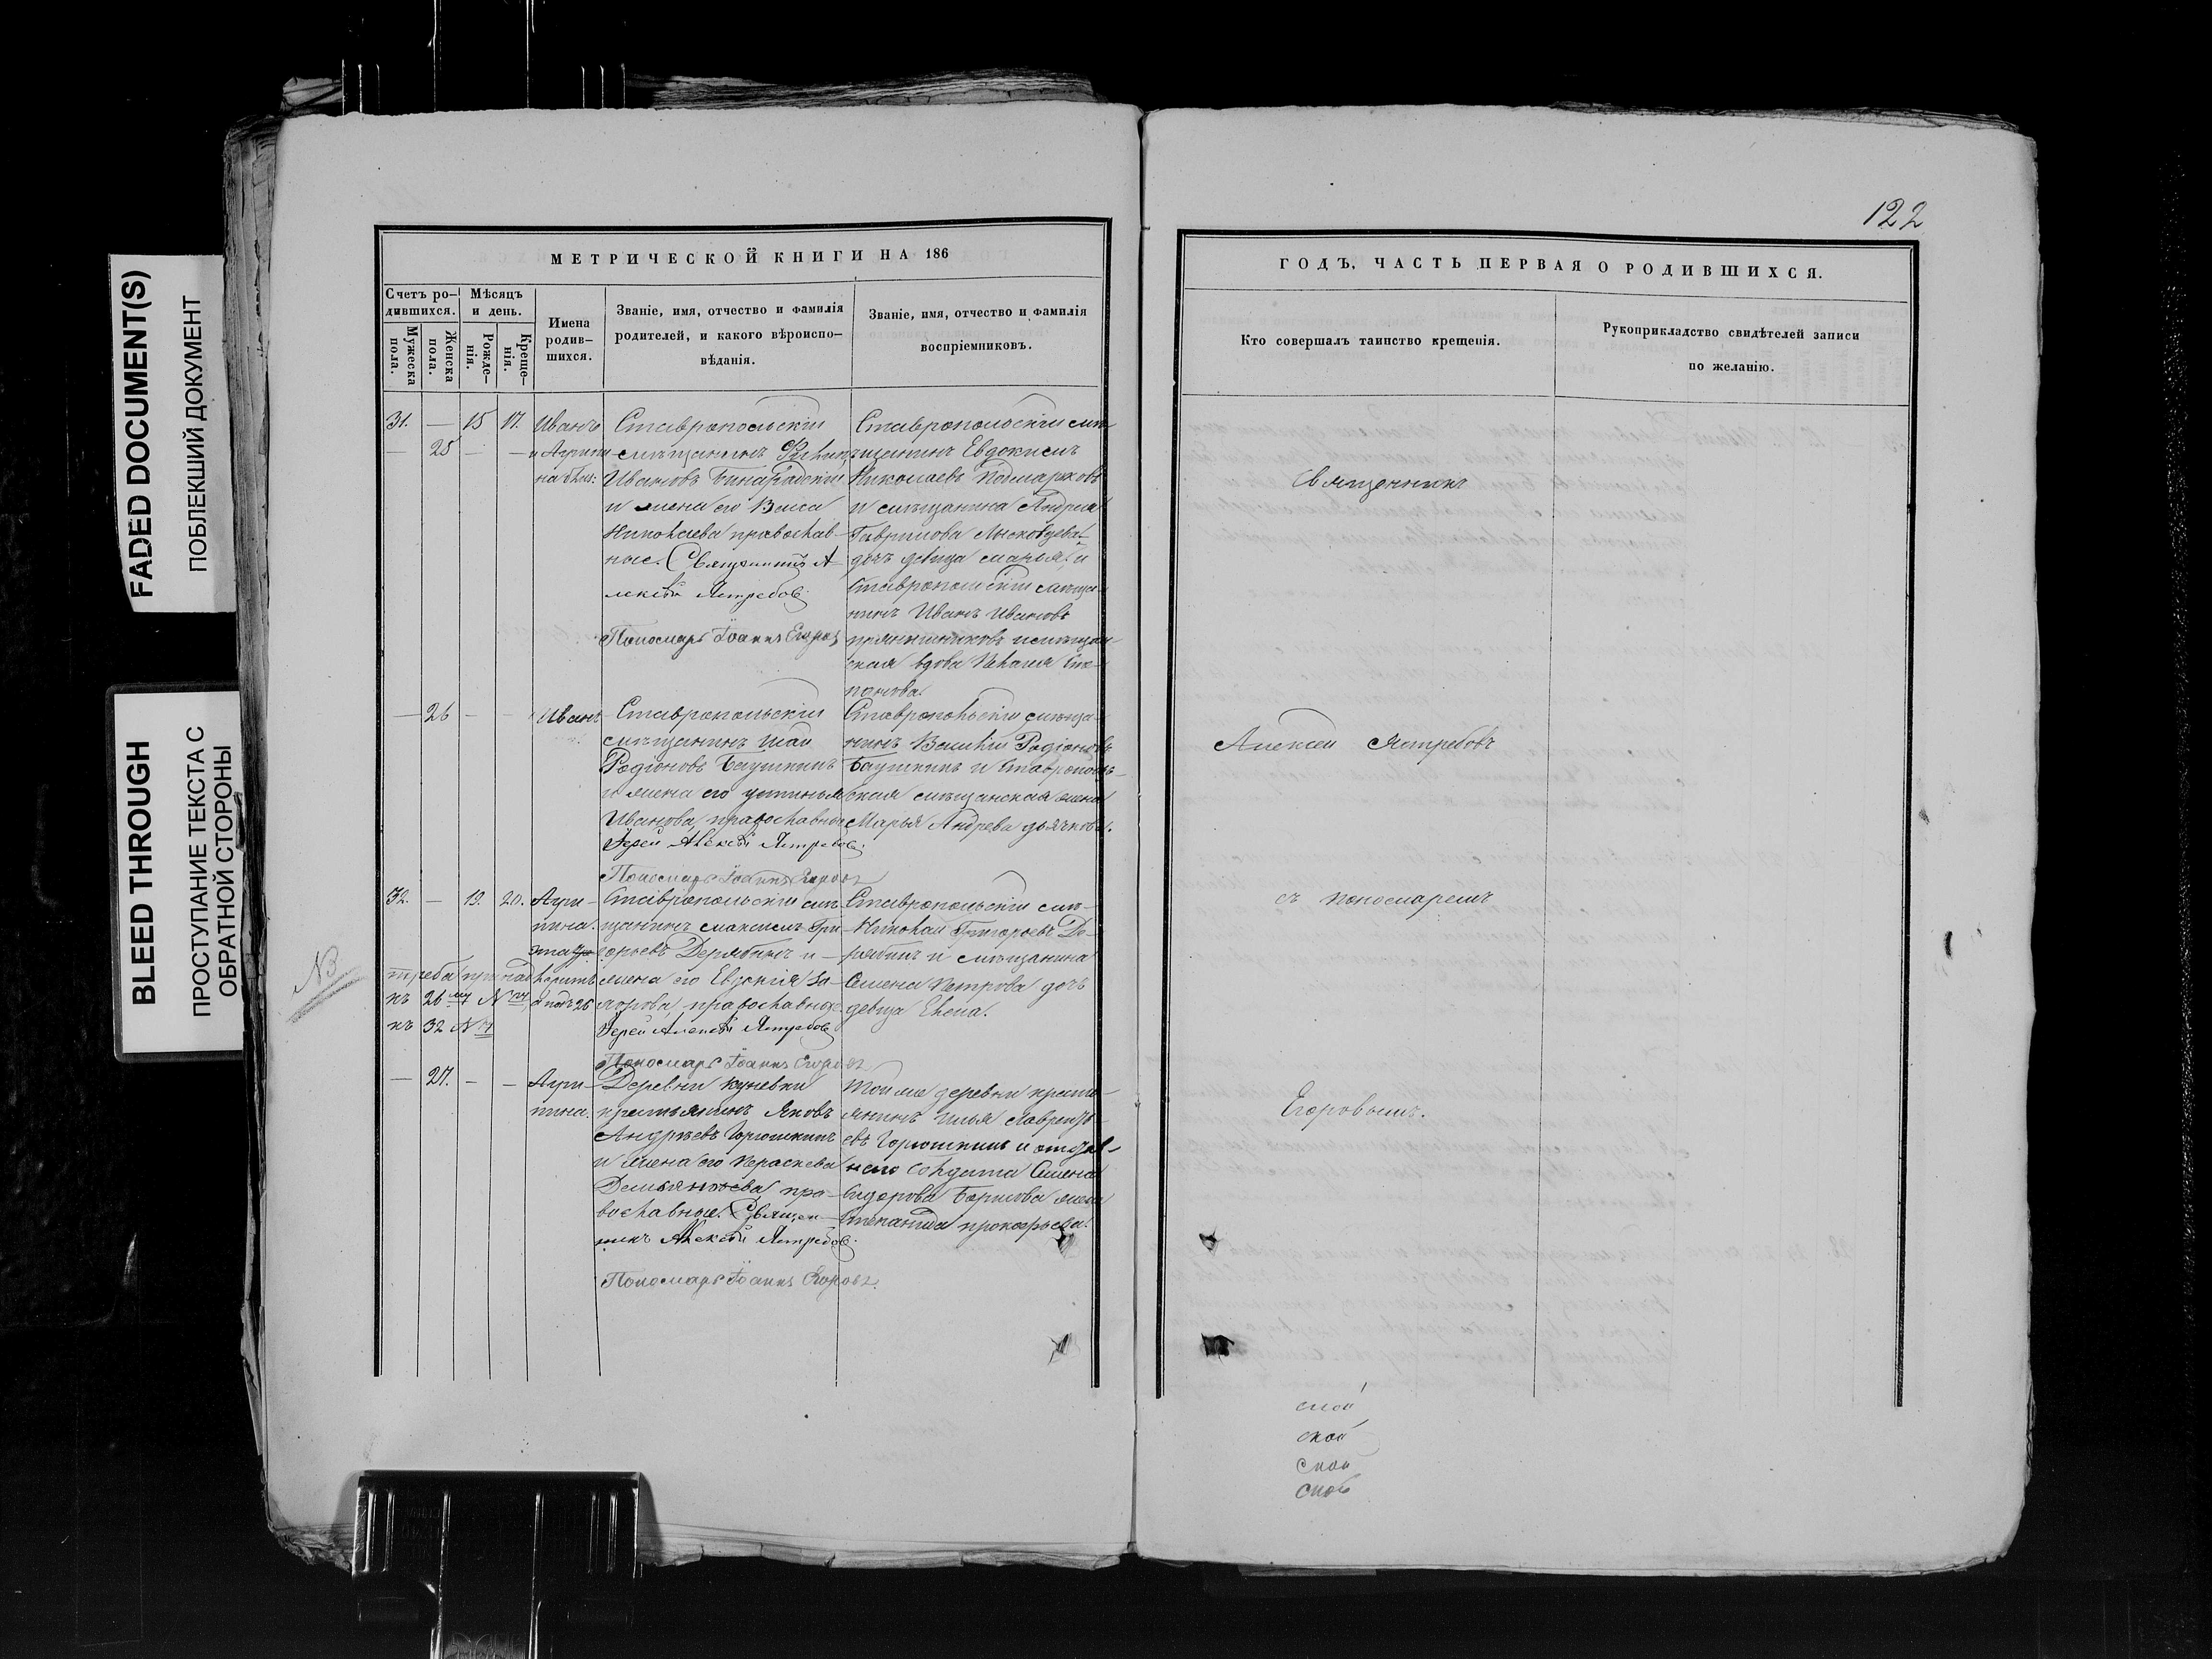 FADED DOCUMENT(S)
ПОБЛЕКШИЙ ДОКУМЕНТ
BLEED THROUGH
ПРОСТУПАНИЕ ТЕКСТА С
ОБРАТНОЙ СТОРОНЫ
МЕТРИЧЕСКОЙ КНИГИ НА 186
Счетъ ро-
дившихся.
Мужеска
пола.
Женска
пола.
Мѣсяцъ
и день.
Рожде-
нія.
Креще-
нія.
Имена
родив-
шихся.
Званіе, имя, отчество и фамилія
родителей, и какого вѣроиспо-
вѣданія.
Званіе, имя, отчество и фамилія
воспріемниковъ.
31. — 15 17. Иванъ
— 25 — — и Агрипи
на близ:
Ставропольскій
мѣщанинъ
Ивановъ
и жена его Васса
Николаева православ-
ные. Священникъ А-
лексѣй Ястребовъ.
Пономарь Іоаннъ Егоровъ
Ставропольскій мѣ-
щанинъ Евдокимъ
Николаевъ
и мѣщанина Андрея
Гаврилова
дочь девица Марья, и
Ставропольскій мѣща-
нинъ Иванъ Ивановъ
прянишниковъ и мѣщан-
ская вдова Пелагея Сте-
панова.
— 26 — — Иванъ
Ставропольскій
мѣщанинъ
Родіоновъ Баушкинъ
и жена его устинья
Иванова, православные
Іерей Алексѣй Ястребовъ.
Пономарь Іоаннъ Егоровъ
Ставропольскій мѣща-
нинъ Василій Родіоновъ
Баушкинъ и Ставрополь-
ская мѣщанская жена
Марья Андрева дьячкова.
32. — 19. 20. Агри-
пина.
эта
треба принад
лежитъ
къ 26 му № ру, а подъ 26
къ 32 № ру
Ставропольскій мѣ-
щанинъ Максимъ Гри-
горьевъ Дерябинъ и
жена его Евгенія За-
харова, православные.
Іерей Алексѣй Ястребовъ
Пономарь Іоаннъ Егоровъ
Ставропольскій мѣ-
Николай Григорьевъ Де-
рябинъ и мѣщанина
Семена Петрова дочь
девица Елена.
— 27. — — Агри-
пина.
Деревни кунеевки
крестьянинъ Яковъ
Андрѣевъ Горюшкинъ
и жена его Параскева
Демьянова пра-
вославные. Священ-
никъ Алексѣй Ястребовъ.
Пономарь Іоаннъ Егоровъ.
Той же деревни кресть-
янинъ Илья Лаврентьевъ
Горюшкинъ и отстав-
наго Солдата Семена
Сидорова Борисова жена
Степанида прокофьева.
№3
122
ГОДЪ, ЧАСТЬ ПЕРВАЯ О РОДИВШИХСЯ.
Кто совершалъ таинство крещенія.
Рукоприкладство свидѣтелей записи
по желанію.
Священникъ
Алексѣй Ястребовъ
съ пономаремъ
Егоровымъ.